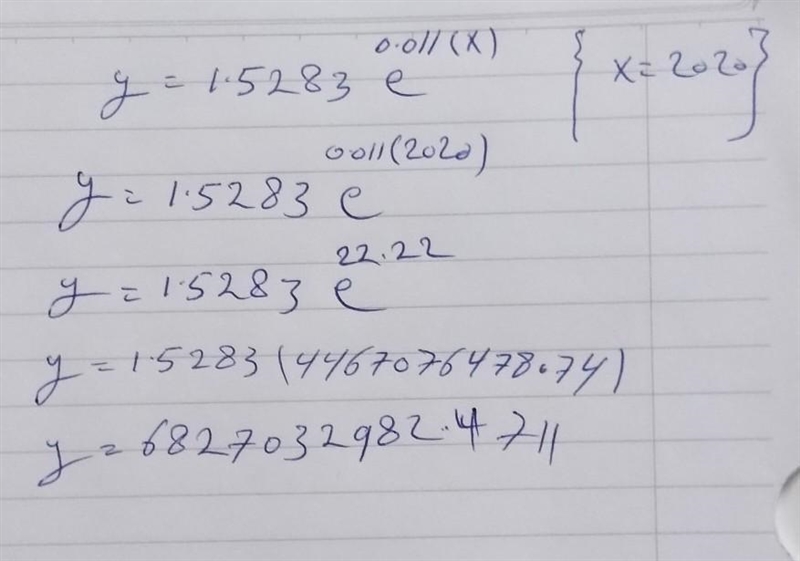 y = 1.5283 e^0.011(x) { x = 2020 }
y = 1.5283 e^0.011(2020)
y = 1.5283 e^22.22
y = 1.5283 (4467076478.74)
y = 6827032982.4711